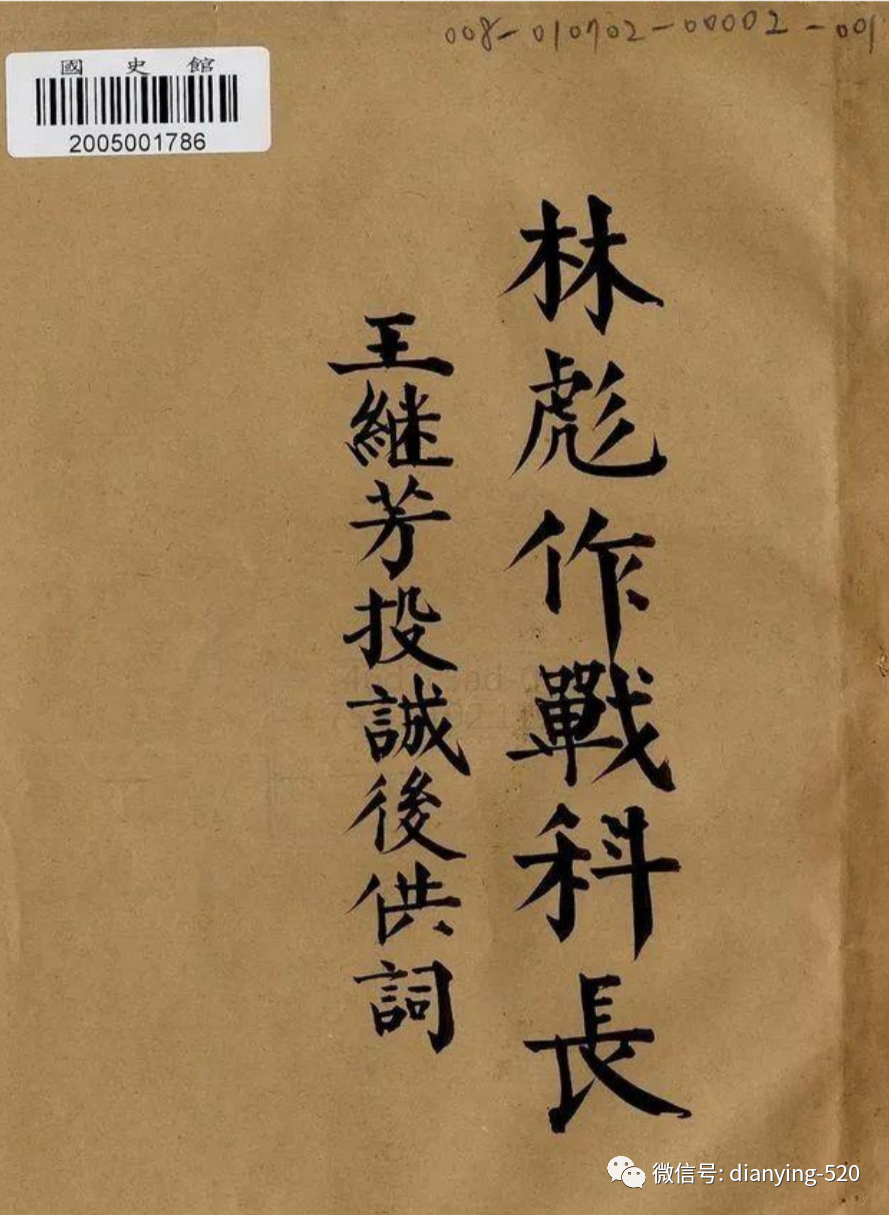 008-010702-00002-001
國史館
2005001786
林彪作戰科長
王継芳投誠後供詞
微信号: dianying-520